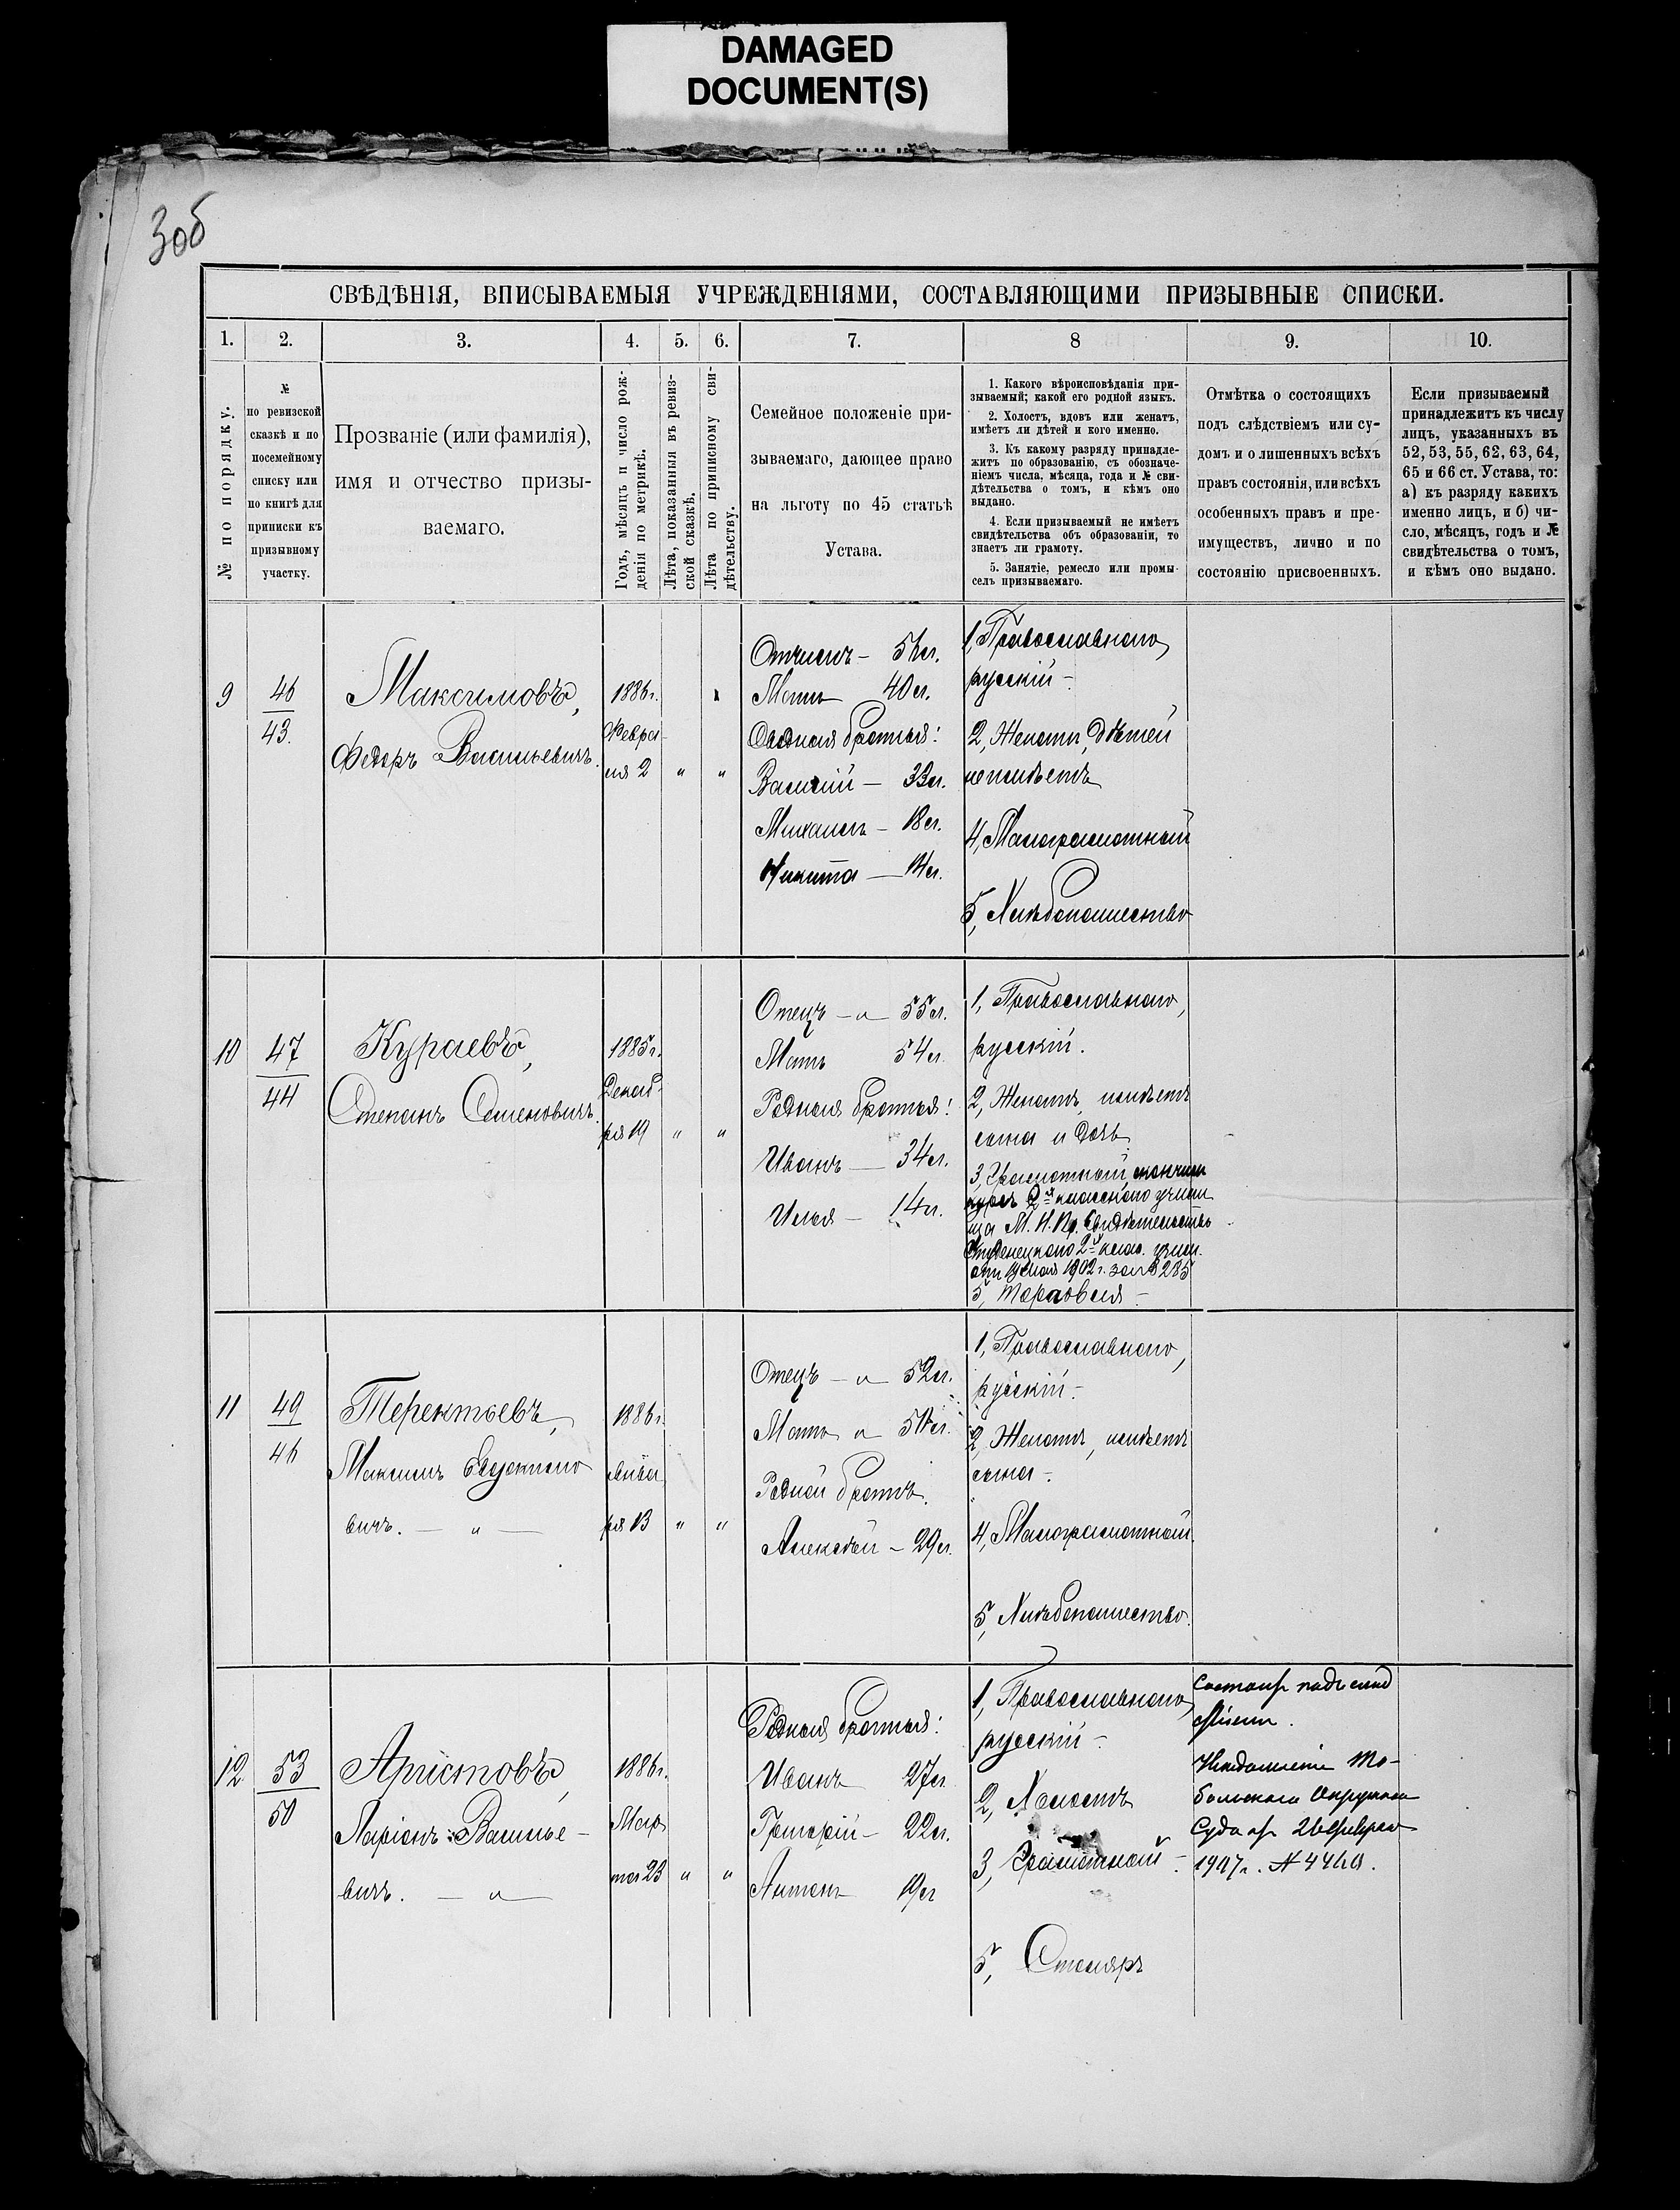 DAMAGED
DOCUMENT(S)
3об
СВѢДѢНІЯ, ВПИСЫВАЕМЫЯ УЧРЕЖДЕНІЯМИ, СОСТАВЛЯЮЩИМИ ПРИЗЫВНЫЕ СПИСКИ.
1. 2. 3. 4. 5. 6. 7. 8 9. 10.
№ по порядку.
№
по ревизской
сказкѣ и по
посемейному
списку или
по книгѣ для
приписки къ
призывному
участку.
Прозваніе (или фамилія),
имя и отчество призы-
ваемаго.
Годъ, мѣсяцъ и число рож-
денія по метрикѣ.
Лѣта, показанныя въ ревиз-
ской сказкѣ.
Лѣта по приписному сви-
дѣтельству.
Семейное положеніе при-
зываемаго, дающее право
на льготу по 45 статьѣ
Устава.
1. Какого вѣроисповѣданія при-
зываемый; какой его родной языкъ.
2. Холостъ, вдовъ или женатъ,
имѣетъ ли дѣтей и кого именно.
3. Къ какому разряду принадле-
житъ по образованію, съ обозначе-
ніемъ числа, мѣсяца, года и № сви-
дѣтельства о томъ, и кѣмъ оно
выдано.
4. Если призываемый не имѣетъ
свидѣтельства объ образованіи, то
знаетъ ли грамоту.
5. Занятіе, ремесло или промы-
селъ призываемаго.
Отмѣтка о состоящихъ
подъ слѣдствіемъ или су-
домъ и о лишенныхъ всѣхъ
правъ состоянія, или всѣхъ
особенныхъ правъ и пре-
имуществъ, лично и по
состоянію присвоенныхъ.
Если призываемый
принадлежитъ къ числу
лицъ, указанныхъ въ
52, 53, 55, 62, 63, 64,
65 и 66 ст. Устава, то:
а) къ разряду какихъ
именно лицъ, и б) чи-
сло, мѣсяцъ, годъ и №
свидѣтельства о томъ,
и кѣмъ оно выдано.
9
46
43.
Максимовъ,
Федоръ Васильевичъ.
1886г.
Февра-
ля 2 " "
Отчимъ —
Мать 40 л.
Сводныя братья:
Василій — 33 л.
Михаилъ — 18 л.
Никита — 14 л.
1, Православнаго,
русскій —
2, Женатъ, дѣтей
не имѣетъ
4, Малограмотный
5, Хлѣбопашество
10
47
44
Кураевъ,
Степанъ Семеновичъ.
1885г.
Декаб-
ря 19 " "
Отецъ — " — 55 л.
Мать 54 л.
Родныя братья:
Иванъ — 34 л.
Илья — 14 л.
1, Православнаго,
русскій.
2, Женатъ, имѣетъ
сына и дочь
3, Грамотный, окончилъ
курсъ 2хъ класснаго учили
ща М. Н. Пр. Свидѣтельство
2хъ клас. учил.
1902 г. за № 285
5, Торговля —
11
49
46
Терентьевъ,
Максимъ Евдокимо
вичъ. — " —
1886г.
Янва
ря 13 " "
Отецъ — " — 52 л.
Мать "
Родной братъ.
Алексѣй — 29 л.
1, Православнаго,
русскій. —
2, Женатъ, имѣетъ
сына —
4, Малограмотный.
5, Хлѣбопашество.
12
53
50
Аристовъ,
Ларіонъ Василье-
вичъ. — " —
1886г.
Мар
та 23 " "
Родныя братья:
Иванъ 27 л.
Григорій — 22 л.
Антонъ 19 л
1, Православнаго,
русскій —
2, Холостъ
3, Грамотный —
5, Столяръ
Состоитъ подъ слѣд
ствіемъ.
Увѣдомленіе То-
больскаго Окружнаго
Суда от 26 Февраля
1907 г. №